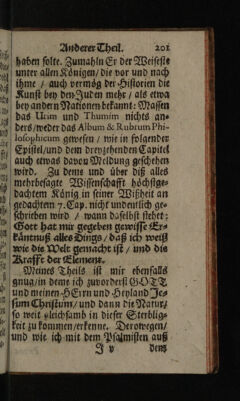 Anderer Theil. 201
haben solte. Zumahln Er der Weiseste
unter allen Königen/ die vor und nach
ihme / auch vermög der Historien die
Kunst bey den Juden mehr / als etwa
bey andern Nationen bekannt: Massen
das Urim und Thumim nichts an-
ders/weder das Album & Rubrum Phi-
losophicum gewesen / wie in folgender
Epistel/und dem dreyzehenden Capitel
auch etwas davon Meldung geschehen
wird. Zu deme und über diß alles
mehrbesagte Wissenschafft höchstge-
dachtem König in seiner Wißheit an
gedachtem 7. Cap. nicht undeutlich ge-
schrieben wird / wann daselbst stehet:
Gott hat mir gegeben gewisse Er-
käntnuß alles Dings/ daß ich weiß
wie die Welt gemacht ist / und die
Krafft der Element.
Meines Theils ist mir ebenfalls
gnug/in deme ich zuvorderst GOTT
und meinen HErrn und Heyland Je-
sum Christum/ und dann die Natur/
so weit gleichsamb in dieser Sterblig-
keit zu kommen/erkenne. Derowegen/
und wie ich mit dem Psalmisten auß
J v denz